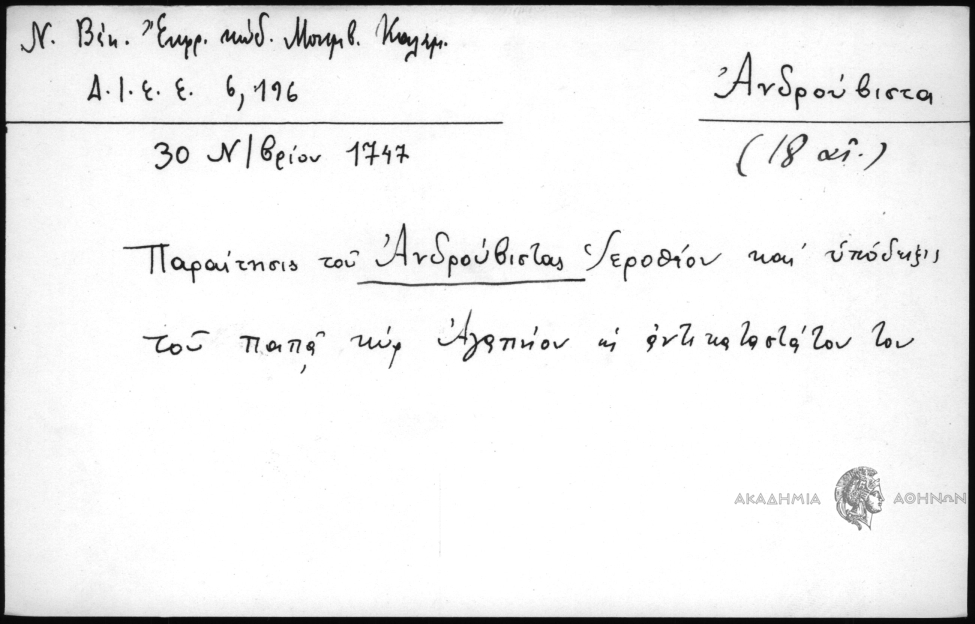 Ν. Βέη. Ἔκφρ. κώδ. Μονεμβ. Καλαμ.
Δ.Ι.Ε.Ε. 6, 196
Ἀνδρούβιστα
30 Ν/βρίου 1747
(18 αἰ.)
Παραίτησις τοῦ Ἀνδρούβιστας Ἱεροθέου καὶ ὑπόδειξις
τοῦ παπᾶ κύρ Ἀγαπηίου ὡς ἀντικαταστάτου του
ΑΚΑΔΗΜΙΑ ΑΘΗΝΩΝ